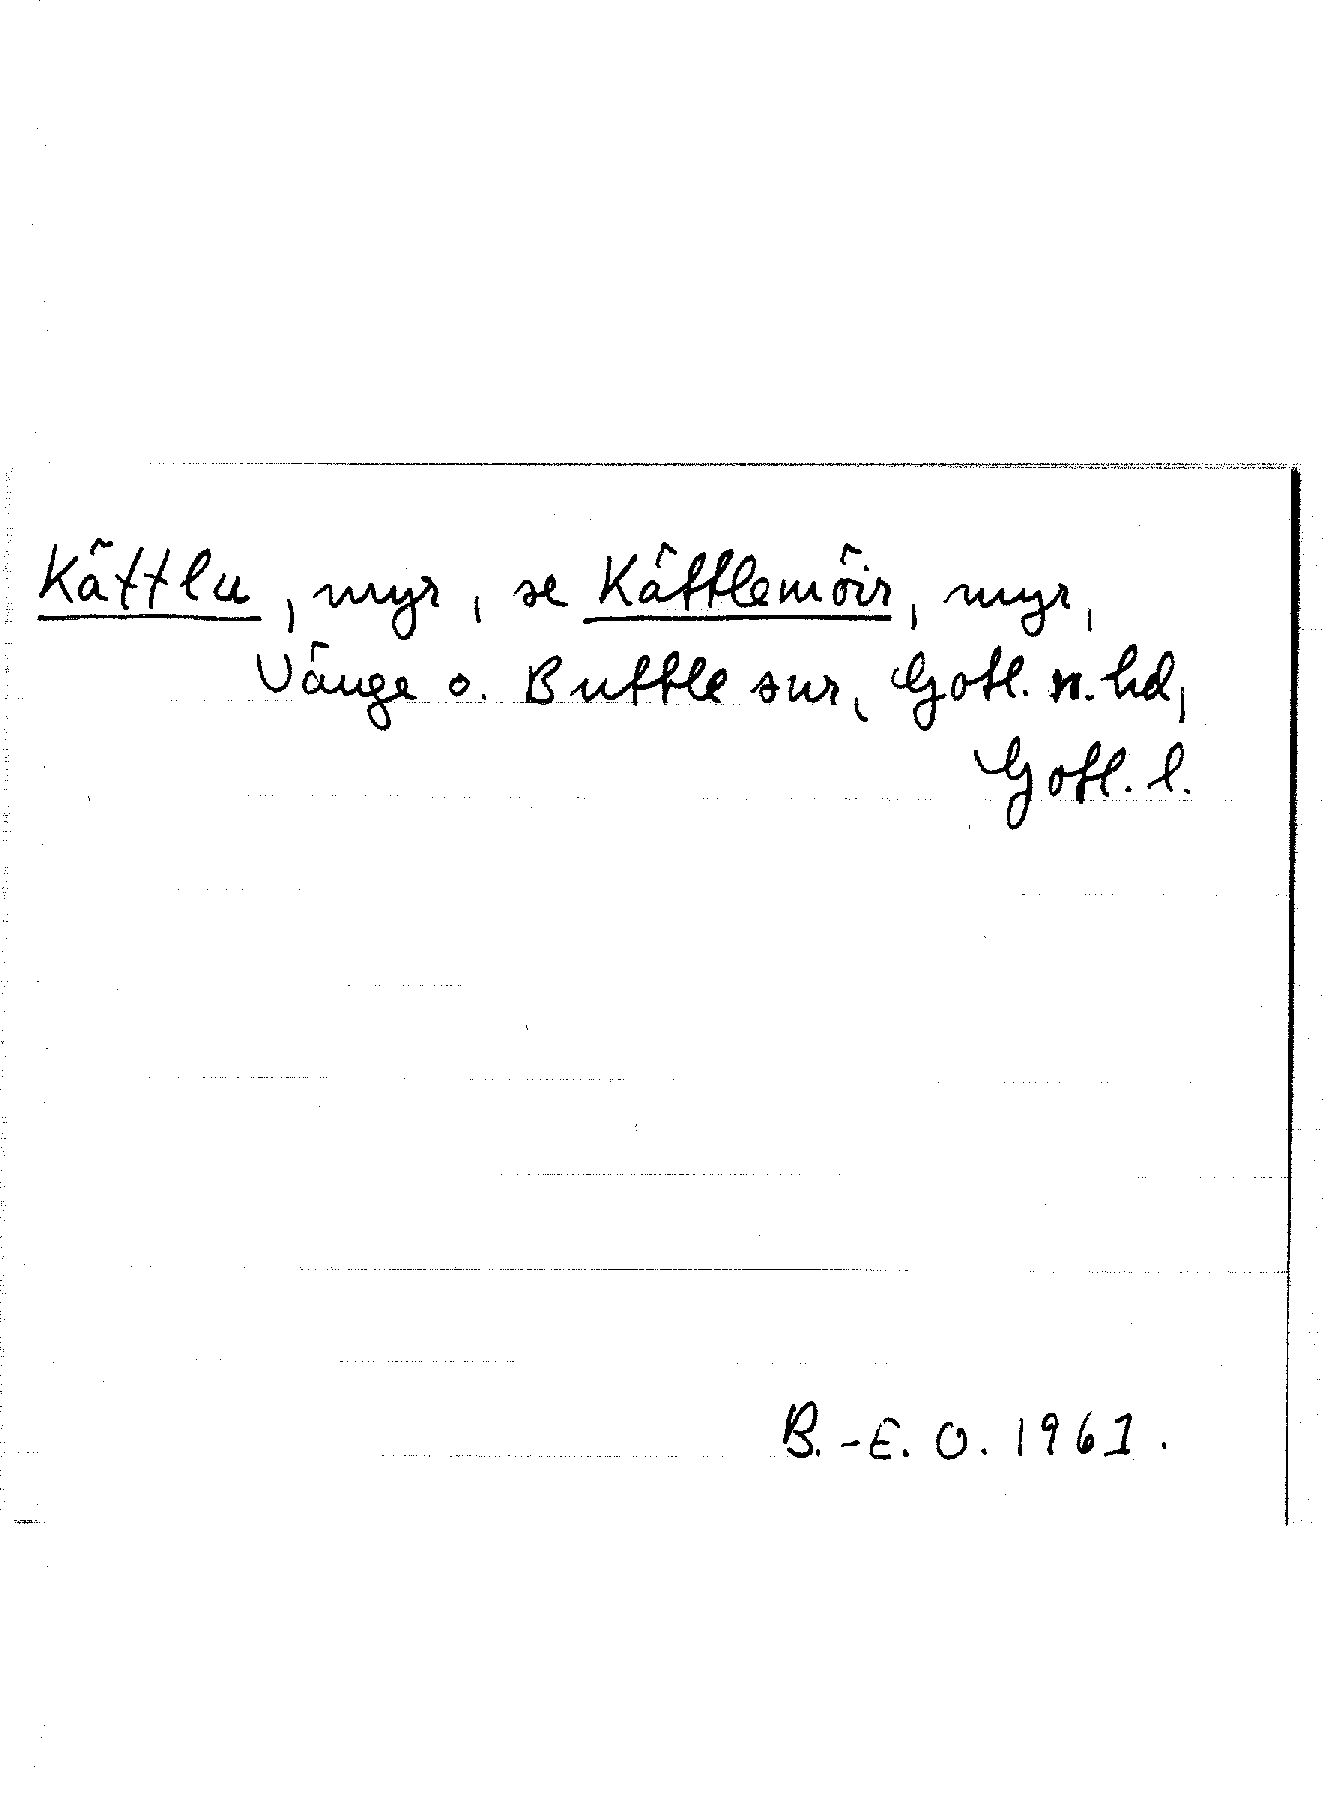 Kättlu, myr, se Kättlemöir, myr,
Vänge o. Buttle snr, Gotl. n. hd,
Gotl. l.
B.-E. O. 1961.